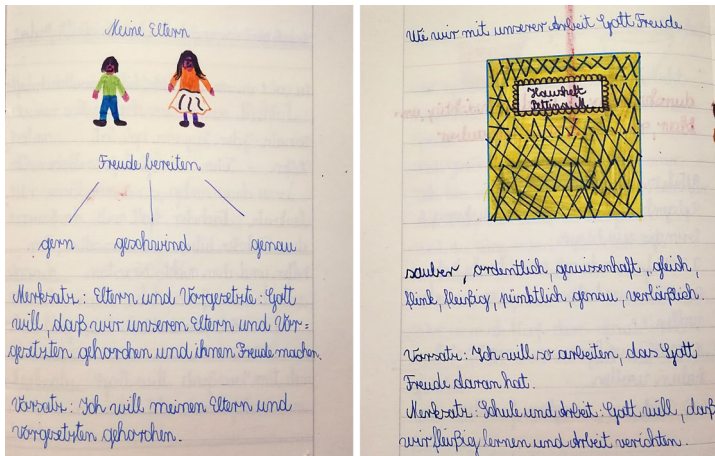 Meine Eltern
Freude bereiten
gern geschwind genau
Merksatz: Eltern und Vorgesetzte: Gott
will, daß wir unseren Eltern und Vor=
gesetzten gehorchen und ihnen Freude machen.
Vorsatz: Ich will meinen Eltern und
Vorgesetzten gehorchen.
Wie wir mit unserer Arbeit Gott Freude
Hausheft
Bettina M
sauber, ordentlich, gewissenhaft, gleich,
flink, fleißig, pünktlich, genau, verläßlich.
Vorsatz: Ich will so arbeiten, das Gott
Freude daran hat.
Merksatz: Schule und Arbeit: Gott will, daß
wir fleißig lernen und Arbeit verichten.